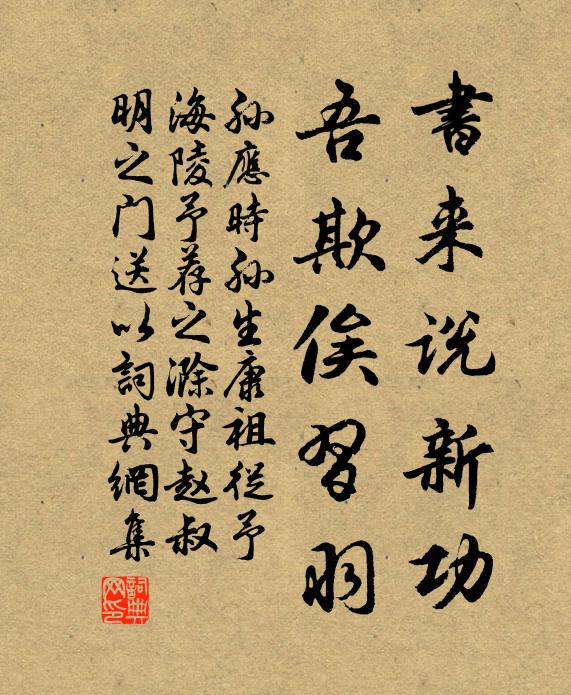 書来说新功
吾欺俟習羽
孙應時孙生康祖從予
海陵予荐之滁守赵叔
明之门送以詞典網集
詞典网印